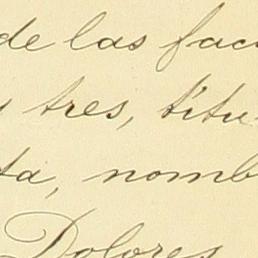 de las fac
y tres, títu
ta, nomb
Dolores